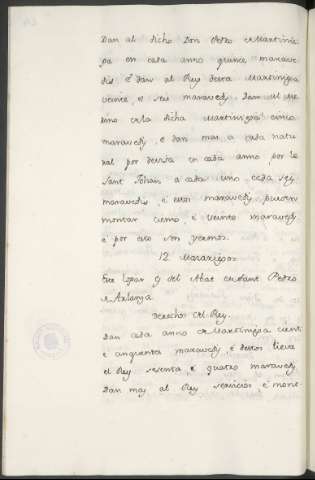 Dan al dicho Don Pedro de Martinie
ga en cada anno quince marave
dis, e dan al Rey desta Martiniega
veinte, e seis maravedy. Dan al Me
rino de la dicha Martiniega cinco
maravedy, e dan mas a cada natu
ral por devisa en cada anno, por le
Sant Johan, a cada uno cada sey
maravedis, e estos maravedy pueden
montar ciento e veinte maravedy
e por esto son yermos.
12 Mazariegos.
Este logar es del Abat de Sant Pedro
de Arlanza
Derechos del Rey.
Dan cada anno de Martiniega cient
e cinquenta maravedy, e destos lieva
el Rey sesenta, e quatro maravedy.
Dan mas al Rey servicios, e mone